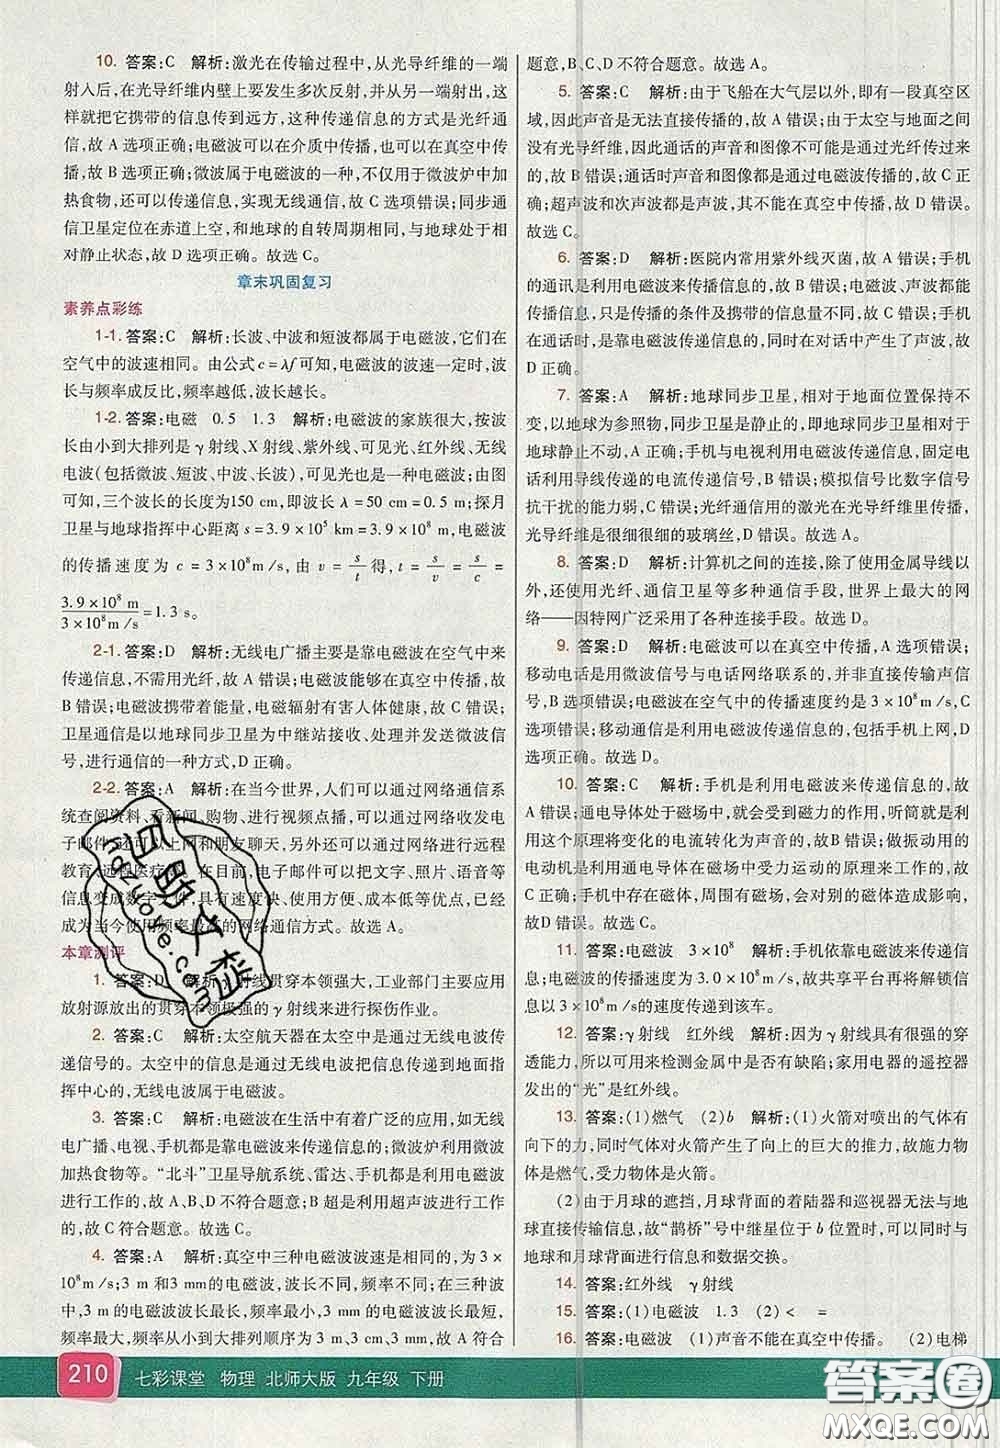 10. 答案:C 解析:激光在传输过程中,从光导纤维的一端
射入后,在光导纤维内壁上要发生多次反射,并从另一端射出,这
样就把它携带的信息传到远方,这种传递信息的方式是光纤通
信,故 A 选项正确;电磁波可以在介质中传播,也可以在真空中传
播,故 B 选项正确;微波属于电磁波的一种,不仅用于微波炉中加
热食物,还可以传递信息,实现无线通信,故 C 选项错误;同步通
信卫星定位在赤道上空,和地球的自转周期相同,与地球处于相
对静止状态,故 D 选项正确。故选 C。
章末巩固复习
素养点彩练
1-1. 答案:C 解析:长波、中波和短波都属于电磁波,它们在
空气中的波速相同。由公式 c=λf 可知,电磁波的波速一定时,波
长与频率成反比,频率越低,波长越长。
1-2. 答案:电磁 0.5 1.3 解析:电磁波的家族很大,按波
长由小到大排列是 γ 射线、X 射线、紫外线、可见光、红外线、无线
电波(包括微波、短波、中波、长波),可见光也是一种电磁波;由图
可知,三个波长的长度为150 cm,即波长 λ=50 cm=0.5 m;探月
卫星与地球指挥中心距离 s=3.9×10⁵ km=3.9×10⁸ m,电磁波
的传播速度为 c=3×10⁸m/s,由 v=s/t 得,t=s/v=s/c=
3.9×10⁸ m/3×10⁸ m/s=1.3 s。
2-1. 答案:D 解析:无线电广播主要是靠电磁波在空气中来
传递信息,不需用光纤,故 A 错误;电磁波能够在真空中传播,故
B 错误;电磁波携带着能量,电磁辐射有害人体健康,故 C 错误;
卫星通信是以地球同步卫星为中继站接收、处理并发送微波信
号,进行通信的一种方式,D 正确。
2-2. 答案:A 解析:在当今世界,人们可以通过网络通信系
统查阅资料、看新闻、购物、进行视频点播,可以通过网络收发电
子邮件,还可以上网和朋友聊天,另外还可以通过网络进行远程
教育、远程医疗等。在目前,电子邮件可以把文字、照片、语音等
信息变成数字文件,具有速度快、使用方便、成本低等优点,已经
成为当今使用频率最高的网络通信方式。故选 A。
本章测评
1. 答案:D 解析:γ射线贯穿本领强大,工业部门主要应用
放射源放出的贯穿本领极强的 γ 射线来进行探伤作业。
2. 答案:C 解析:太空航天器在太空中是通过无线电波传
递信号的。太空中的信号是通过无线电波把信息传递到地面指
挥中心的,无线电波属于电磁波。
3. 答案:C 解析:电磁波在生活中有着广泛的应用,如无线
电广播、电视、手机都是靠电磁波来传递信息的;微波炉利用微波
加热食物等。“北斗”卫星导航系统、雷达、手机都是利用电磁波
进行工作的,故 A、B、D 不符合题意;B 超是利用超声波进行工作
的,故 C 符合题意。故选 C。
4. 答案:A 解析:真空中三种电磁波波速是相同的,为 3×
10⁸m/s;3 m 和 3 mm 的电磁波,波长不同,频率不同;在三种波
中,3 m 的电磁波波长最长,频率最小,3 mm 的电磁波波长最短,
频率最大,故从小到大排列顺序为 3 m、3 cm、3 mm,故 A 符合
题意,B、C、D 不符合题意。故选 A。
5. 答案:C 解析:由于飞船在大气层以外,即有一段真空区
域,因此声音是无法直接传播的,故 A 错误;由于太空与地面之间
没有光导纤维,因此通话的声音和图像不可能是通过光纤传过来
的,故 B 错误;通话时声音和图像都是通过电磁波传播的,故 C 正
确;超声波和次声波都是声波,其不能在真空中传播,故 D 错误。
故选 C。
6. 答案:D 解析:医院内常用紫外线灭菌,故 A 错误;手机
的通讯是利用电磁波来传递信息的,电磁波、声波都能传播
信息,只是传播的条件及携带的信息量不同,故 C 错误;手机
是靠电磁波传递信息的,同时在对话中产生了声波,故
D 正确。
7. 答案:A 解析:地球同步卫星,相对地面位置保持不
变,以地球为参照物,同步卫星是静止的,即地球同步卫星相对于
地球静止不动,A 正确;手机与电视利用电磁波传递信息,固定电
话利用导线传递的电流传递信号,B 错误;模拟信号比数字信号
抗干扰的能力弱,C 错误;光纤通信用的激光在光导纤维里传播,
光导纤维是很细很细的玻璃丝,D 错误。故选 A。
8. 答案:D 解析:计算机之间的连接,除了使用金属导线以
外,还使用光纤、通信卫星等多种通信手段,世界上最大的网
络——因特网广泛采用了各种连接手段。故选 D。
9. 答案:D 解析:电磁波可以在真空中传播,A 选项错误;
移动电话是用微波信号与电话网络联系的,并非直接传输声信
号,B 选项错误;电磁波在空气中的传播速度约是 3×10⁸ m/s,C
选项错误;移动通信是利用电磁波传递信息的,包括手机上网,D
选项正确。故选 D。
10. 答案:C 解析:手机是利用电磁波来传递信息的,故
A 错误;通电导体处于磁场中,就会受到磁力的作用,听筒就是利
用这个原理将变化的电流转化为声音的,故 B 错误;做振动用的
电动机是利用通电导体在磁场中受力运动的原理来工作的,故
C 正确;手机中存在磁体,周围有磁场,会对别的磁体造成影响,
故D 错误。故选 C。
11. 答案:电磁波 3×10⁸ 解析:手机依靠电磁波来传递信
息;电磁波的传播速度为 3.0×10⁸ m/s,故共享平台再将解锁信
息以 3×10⁸ m/s的速度传递到该车。
12. 答案:γ 射线 红外线 解析:因为 γ 射线具有很强的穿
透能力,所以可用来检测金属中是否有缺陷;家用电器的遥控器
发出的“光”是红外线。
13. 答案:(1)燃气 (2)b 解析:(1)火箭对喷出的气体有
向下的力,同时气体对火箭产生了向上的巨大的推力,故施力物
体是燃气,受力物体是火箭。
(2)由于月球的遮挡,月球背面的着陆器和巡视器无法与地
球直接传输信息,故“鹊桥”号中继星位于 b 位置时,可以同时与
地球和月球背面进行信息和数据交换。
14. 答案:红外线 γ 射线
15. 答案:(1)电磁波 1.3 (2)< =
16. 答案:电磁波 (1)声音不能在真空中传播。 (2)电梯
210 七彩课堂 物理 北师大版 九年级 下册
答案圈
MXQE.COM